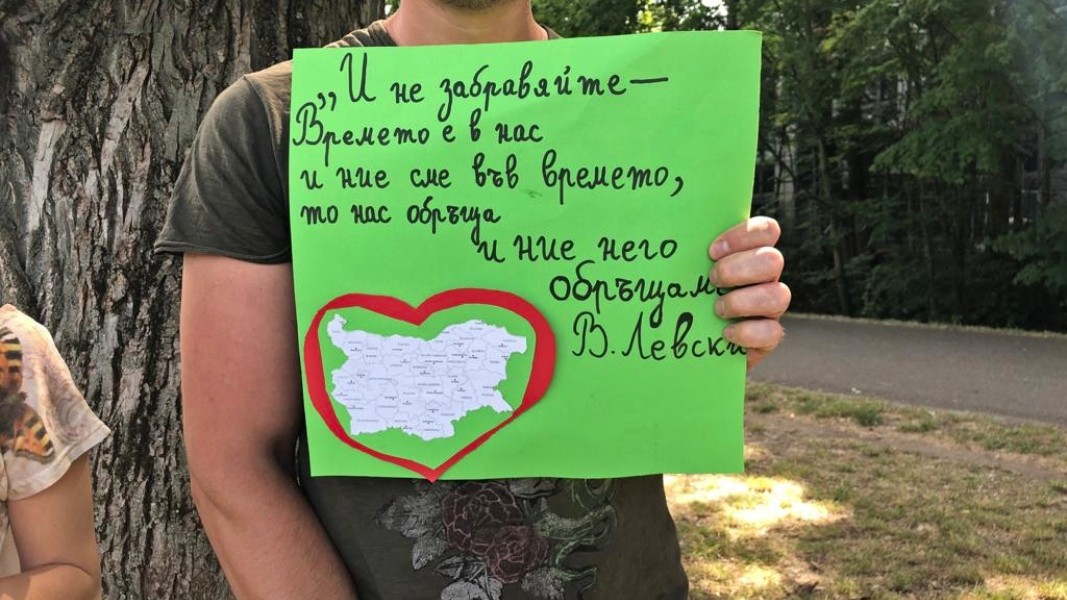 „И не забравяйте —
Времето е в нас
и ние сме във времето,
то нас обръща
и ние него
обръщаме
В. Левски